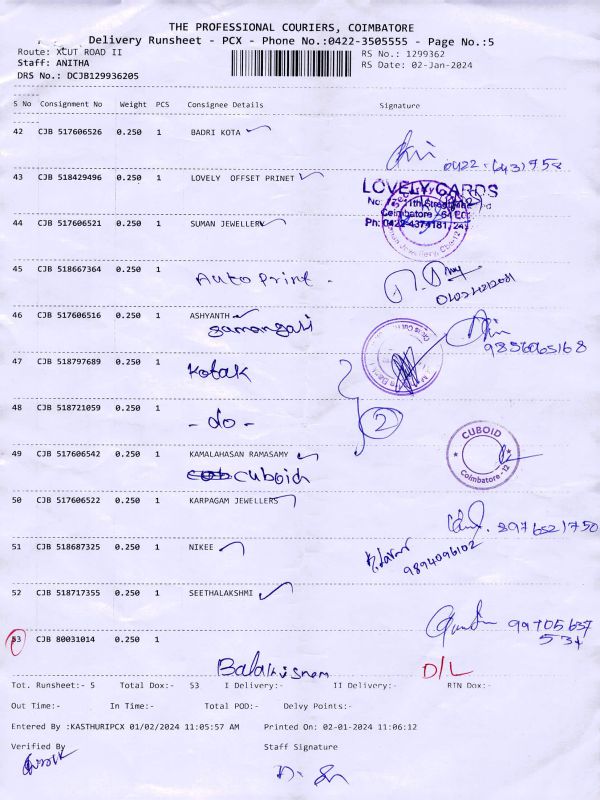 THE PROFESSIONAL COURIERS, COIMBATORE
Delivery Runsheet - PCX - Phone No.:0422-3505555 - Page No.:5
Route: XCUT ROAD II RS No.: 1299362
Staff: ANITHA RS Date: 02-Jan-2024
DRS No.: DCJB129936205
S No Consignment No Weight PCS Consignee Details Signature
42 CJB 517606526 0.250 1 BADRI KOTA
43 CJB 518429496 0.250 1 LOVELY OFFSET PRINET
LOVELY CARDS
44 CJB 517606521 0.250 1 SUMAN JEWELLERY
Ph: 0422-4374181
45 CJB 518667364 0.250 1
Autoprint -
46 CJB 517606516 0.250 1 ASHYANTH
9856065168
47 CJB 518797689 0.250 1
Kotak
48 CJB 518721059 0.250 1
- do - 2
49 CJB 517606542 0.250 1 KAMALAHASAN RAMASAMY
cuboid
CUBOID
Coimbatore - 12
50 CJB 517606522 0.250 1 KARPAGAM JEWELLERS
8976521750
51 CJB 518687325 0.250 1 NIKEE
9894096102
52 CJB 518717355 0.250 1 SEETHALAKSHMI
53 CJB 80031014 0.250 1
D/L
Tot. Runsheet:- 5 Total Dox:- 53 I Delivery:- II Delivery:- RTN Dox:-
Out Time:- In Time:- Total POD:- Delvy Points:-
Entered By :KASTHURIPCX 01/02/2024 11:05:57 AM Printed On: 02-01-2024 11:06:12
Verified By Staff Signature